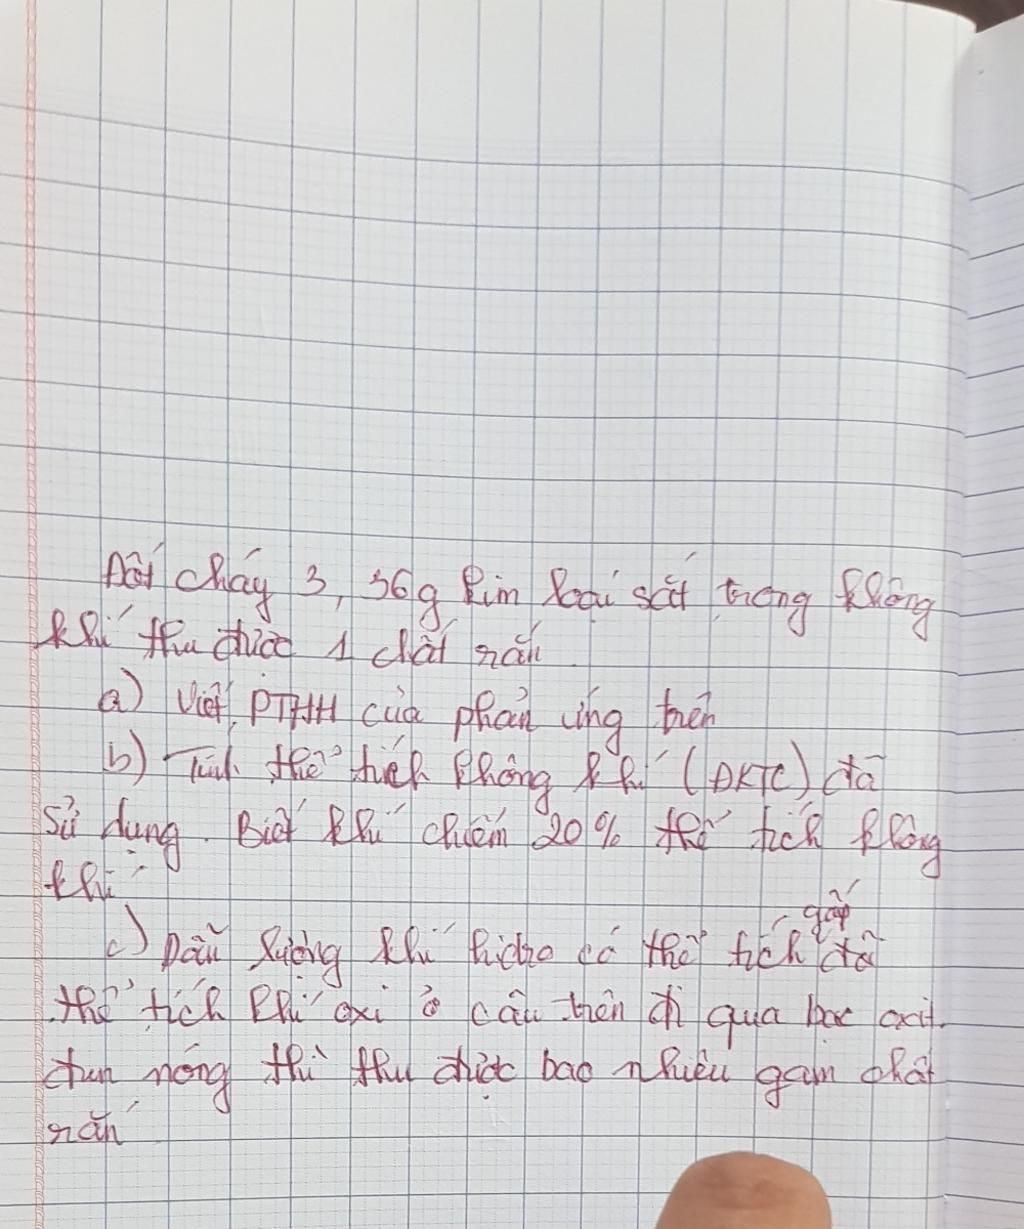 Đốt cháy 3,36g kim loại sắt trong không
khí thu được 1 chất rắn
a) Viết PTHH của phản ứng trên
b) Tính thể tích không khí (ĐKTC) đã
sử dụng. Biết khí chiếm 20% thể tích không
khí
c) Dẫn lượng khí hidro có thể tích gấp đôi
thể tích khí oxi ở câu trên đi qua bạc oxit
đun nóng thì thu được bao nhiêu gam chất
rắn